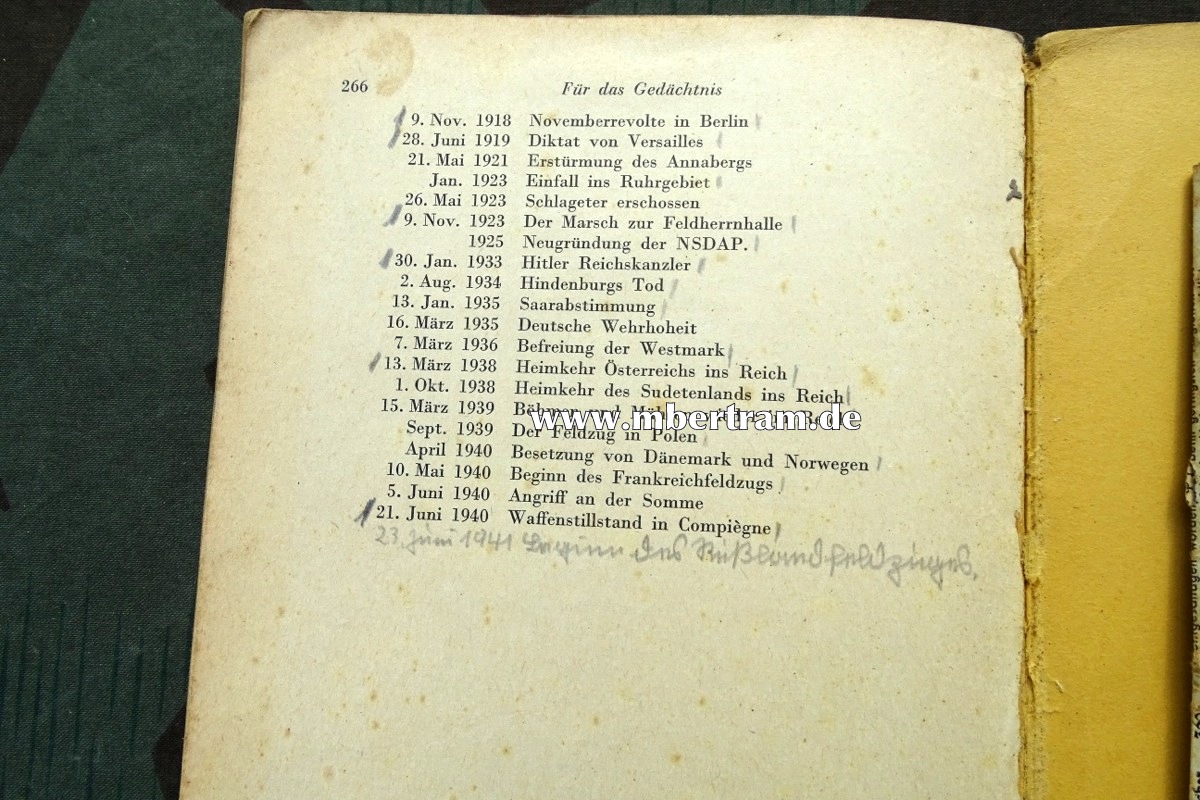 266
Für das Gedächtnis
9. Nov. 1918 Novemberrevolte in Berlin
28. Juni 1919 Diktat von Versailles
21. Mai 1921 Erstürmung des Annabergs
Jan. 1923 Einfall ins Ruhrgebiet
26. Mai 1923 Schlageter erschossen
9. Nov. 1923 Der Marsch zur Feldherrnhalle
1925 Neugründung der NSDAP.
30. Jan. 1933 Hitler Reichskanzler
2. Aug. 1934 Hindenburgs Tod
13. Jan. 1935 Saarabstimmung
16. März 1935 Deutsche Wehrhoheit
7. März 1936 Befreiung der Westmark
13. März 1938 Heimkehr Österreichs ins Reich
1. Okt. 1938 Heimkehr des Sudetenlands ins Reich
15. März 1939 Böhmen und
www.mbertram.de
Sept. 1939 Der Feldzug in Polen
April 1940 Besetzung von Dänemark und Norwegen
10. Mai 1940 Beginn des Frankreichfeldzugs
5. Juni 1940 Angriff an der Somme
21. Juni 1940 Waffenstillstand in Compiègne
23. Juni 1941 Beginn des Rußlandfeldzuges.